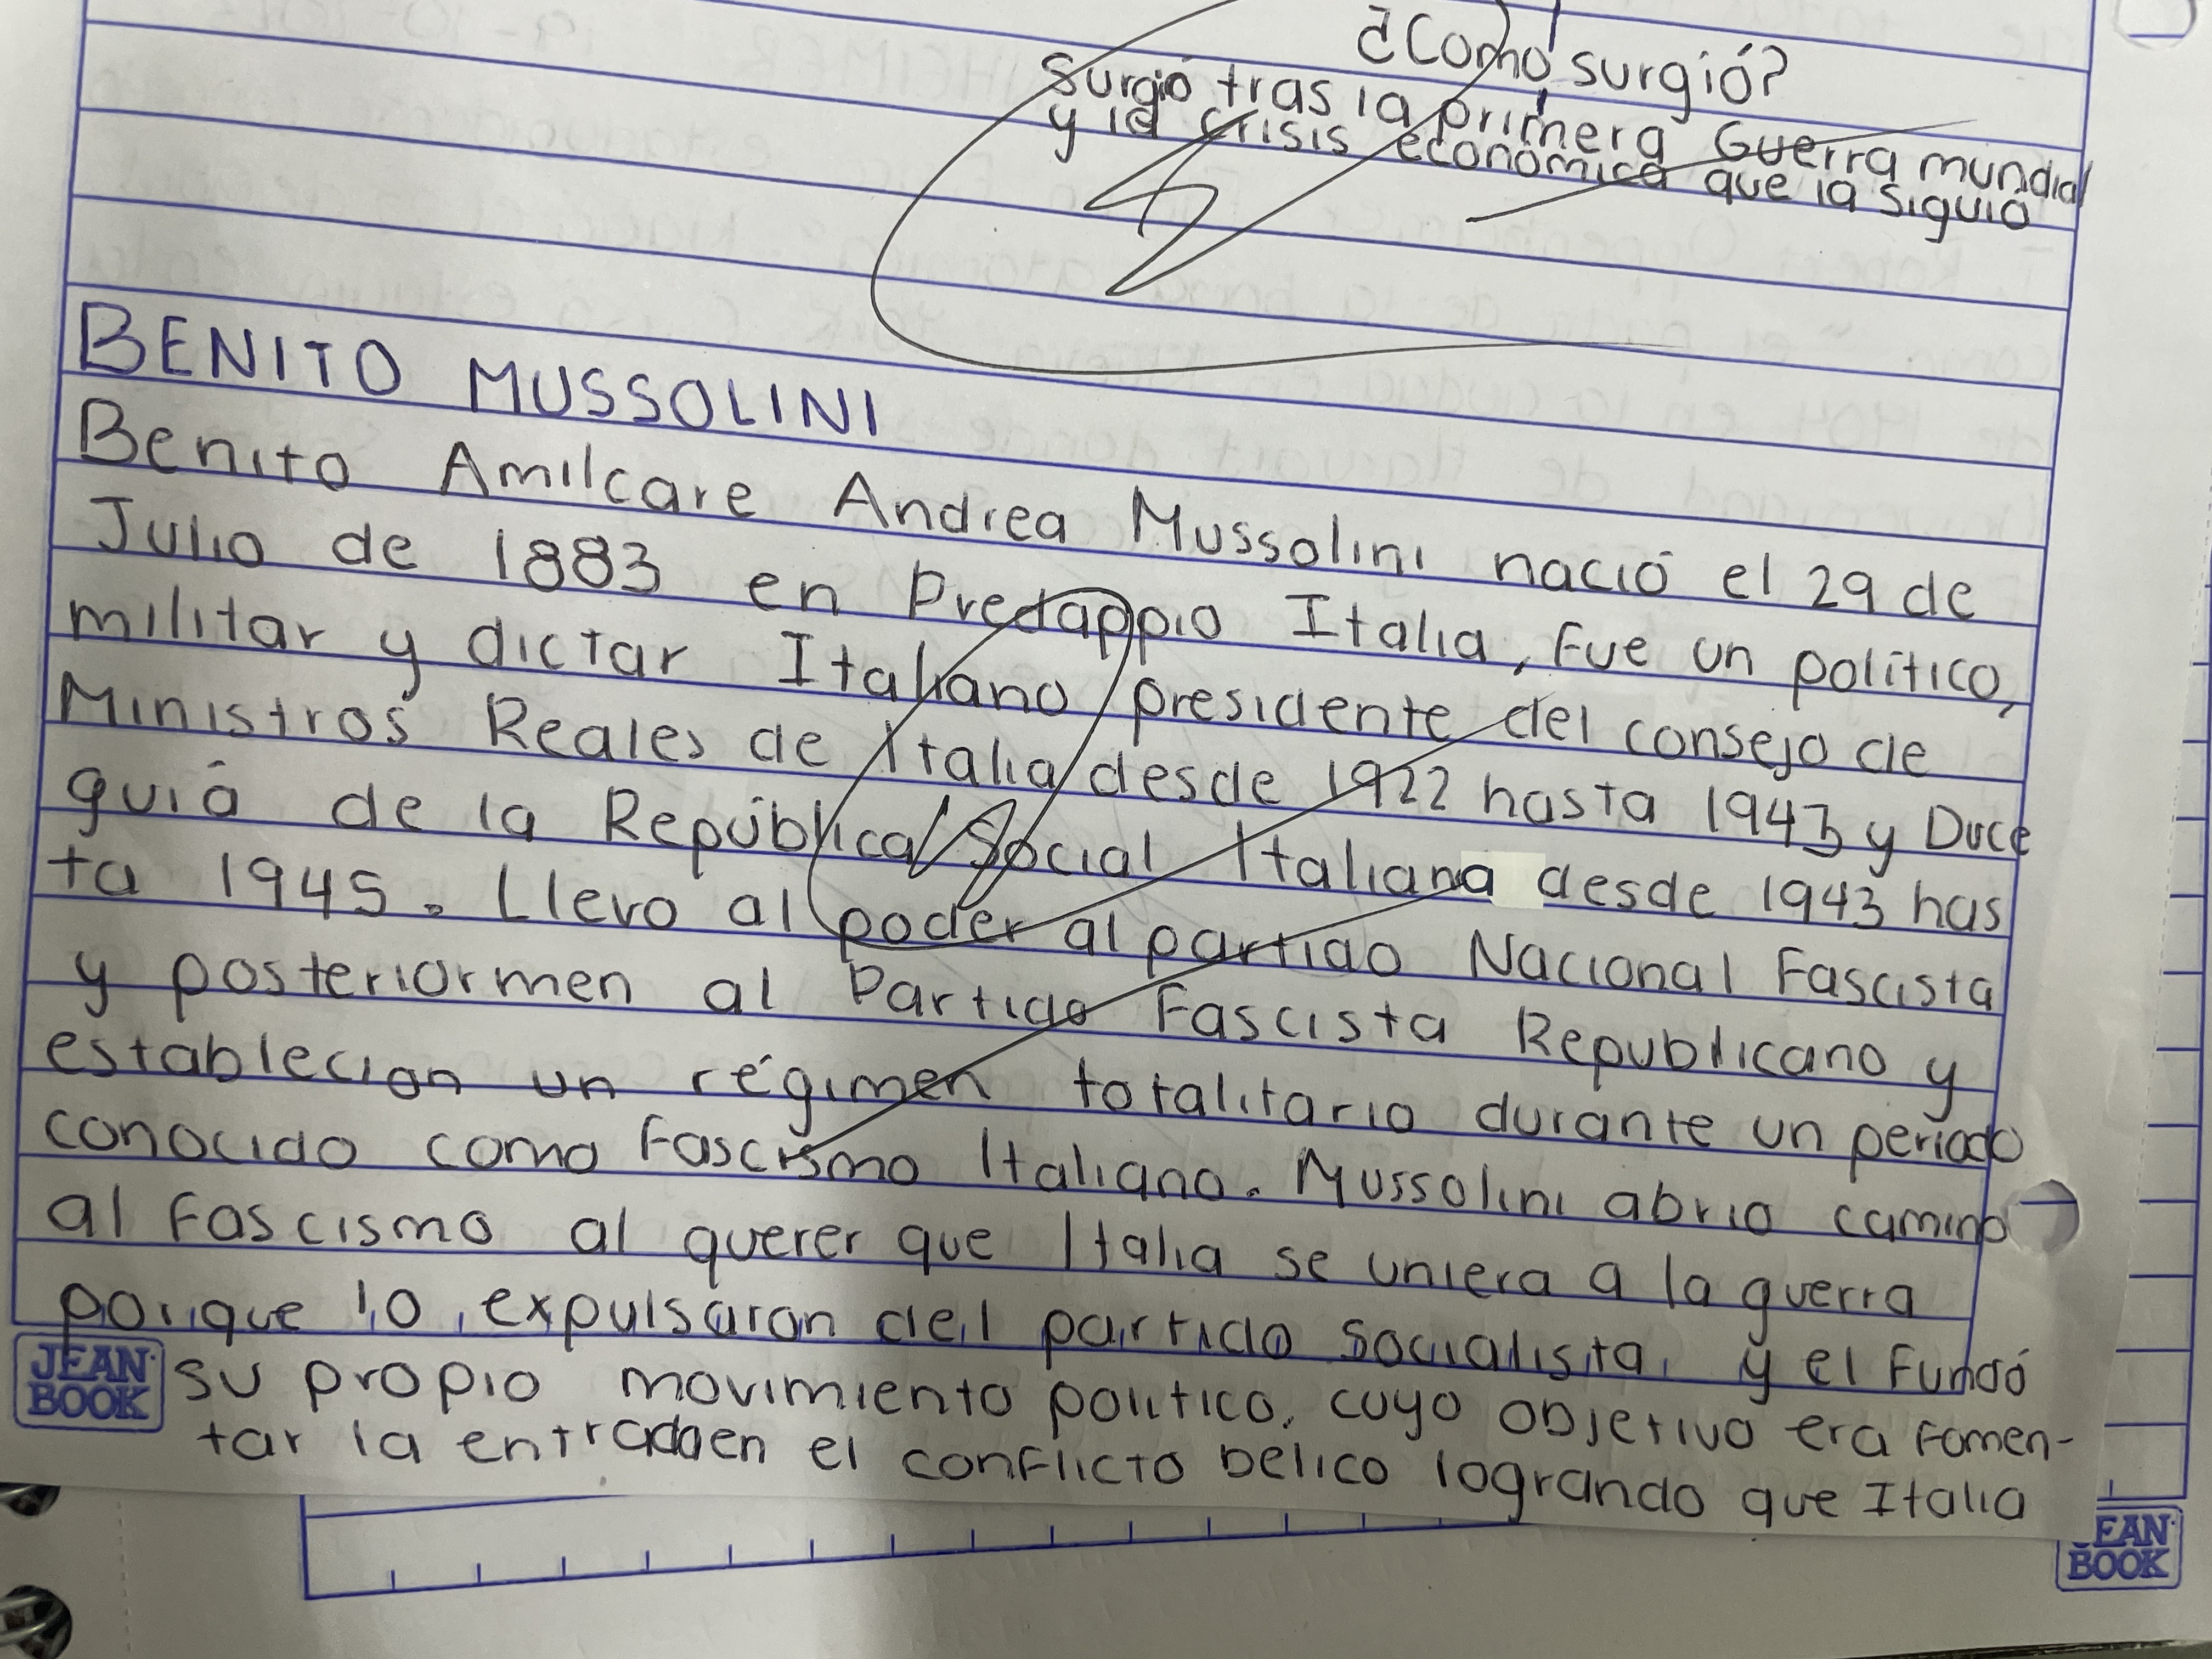 ¿Como surgió?
surgio tras la primera Guerra mundial
y la crisis económica que la siguió
BENITO MUSSOLINI
Benito Amilcare Andrea Mussolini nació el 29 de
Julio de 1883 en Predappio Italia, fue un político,
militar y dictar Italiano presidente del consejo de
Ministros Reales de Italia desde 1922 hasta 1943 y Duce
guiá de la República Social Italiana desde 1943 has
ta 1945. Llevo al poder al partido Nacional Fascista
y posteriormen al Partido Fascista Republicano y
establecion un régimen totalitario durante un periodo
conocido como Fascismo Italiano. Mussolini abrio camino
al Fascismo al querer que Italia se uniera a la guerra
porque lo expulsaron del partido socialista y el Fundó
su propio movimiento politico, cuyo objetivo era fomen-
tar la entradaen el conflicto belico logrando que Italia
JEAN BOOK
EAN BOOK